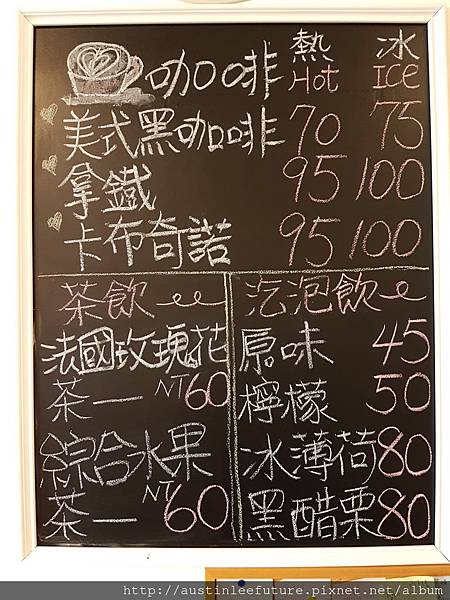 咖啡 熱 冰
Hot ICE
美式黑咖啡 70 75
拿鐵 95 100
卡布奇諾 95 100
茶飲
法國玫瑰花
茶— NT60
綜合水果
茶— NT60
汽泡飲
原味 45
檸檬 50
冰薄荷 80
黑醋栗 80
http://austinleefuture.pixnet.net/album